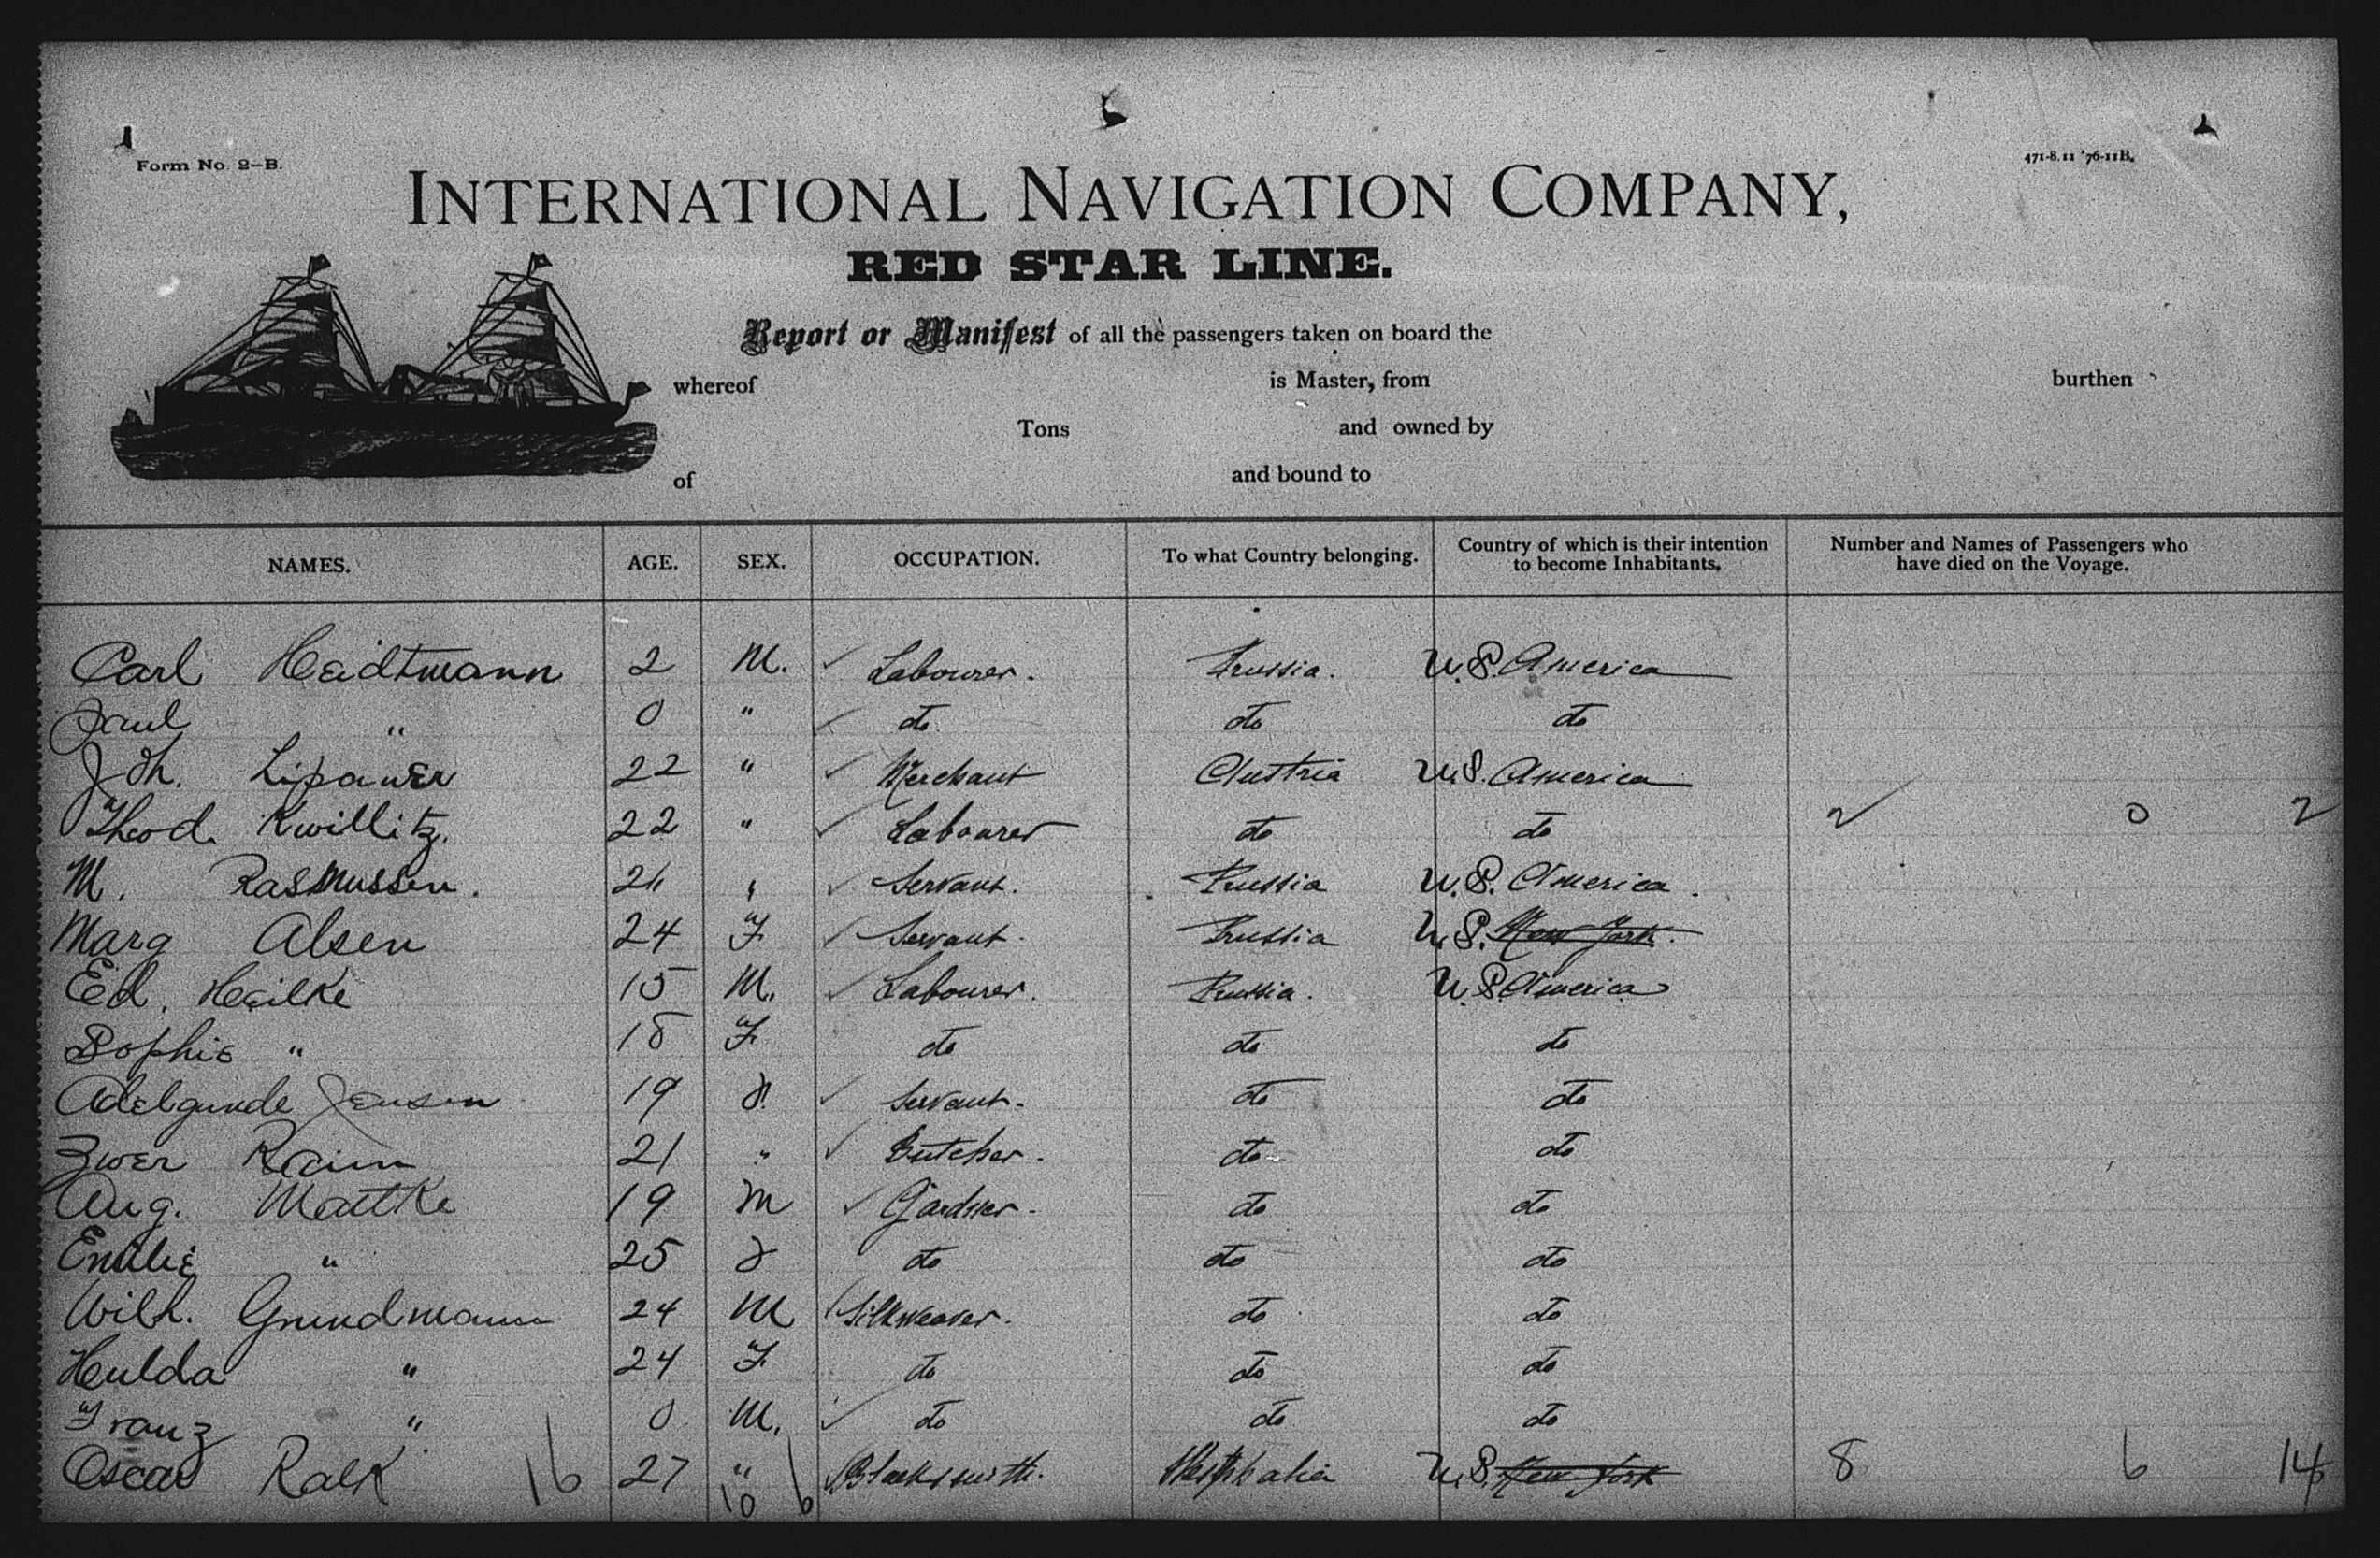 Form No. 2-B.
471-8.11 '76-11B.
INTERNATIONAL NAVIGATION COMPANY,
RED STAR LINE.
Report or Manifest of all the passengers taken on board the
whereof is Master, from burthen
Tons and owned by
of and bound to
NAMES. AGE. SEX. OCCUPATION. To what Country belonging. Country of which is their intention to become Inhabitants. Number and Names of Passengers who have died on the Voyage.
Carl Heidtmann 2 M. Labourer. Prussia. U.S. America
Paul " 0 " do do do
Joh. Lipawer 22 " Merchant Austria U.S. America
Theod. Kwillitz. 22 " Labourer do do 2 0 2
M. Rasmussen. 24 " Servant. Prussia U.S. America.
Marg Alsen 24 F. Servant. Prussia U.S. New York.
Ed. Heilke 15 M. Labourer. Prussia. U.S. America
Sophie " 18 F. do do do
Adelgunde Jensen 19 " Servant. do do
Iwer Raim 21 " Butcher. do do
Aug. Mattke 19 M Gardner. do do
Emilie " 25 F do do do
Wilh. Grundmann 24 M Silkweaver. do do
Hulda " 24 F. do do do
Franz " 0 M. do do do
Oscar Ralk 16 27 " Blacksmith. Westphalia U.S. New York 8 6 14
10 6